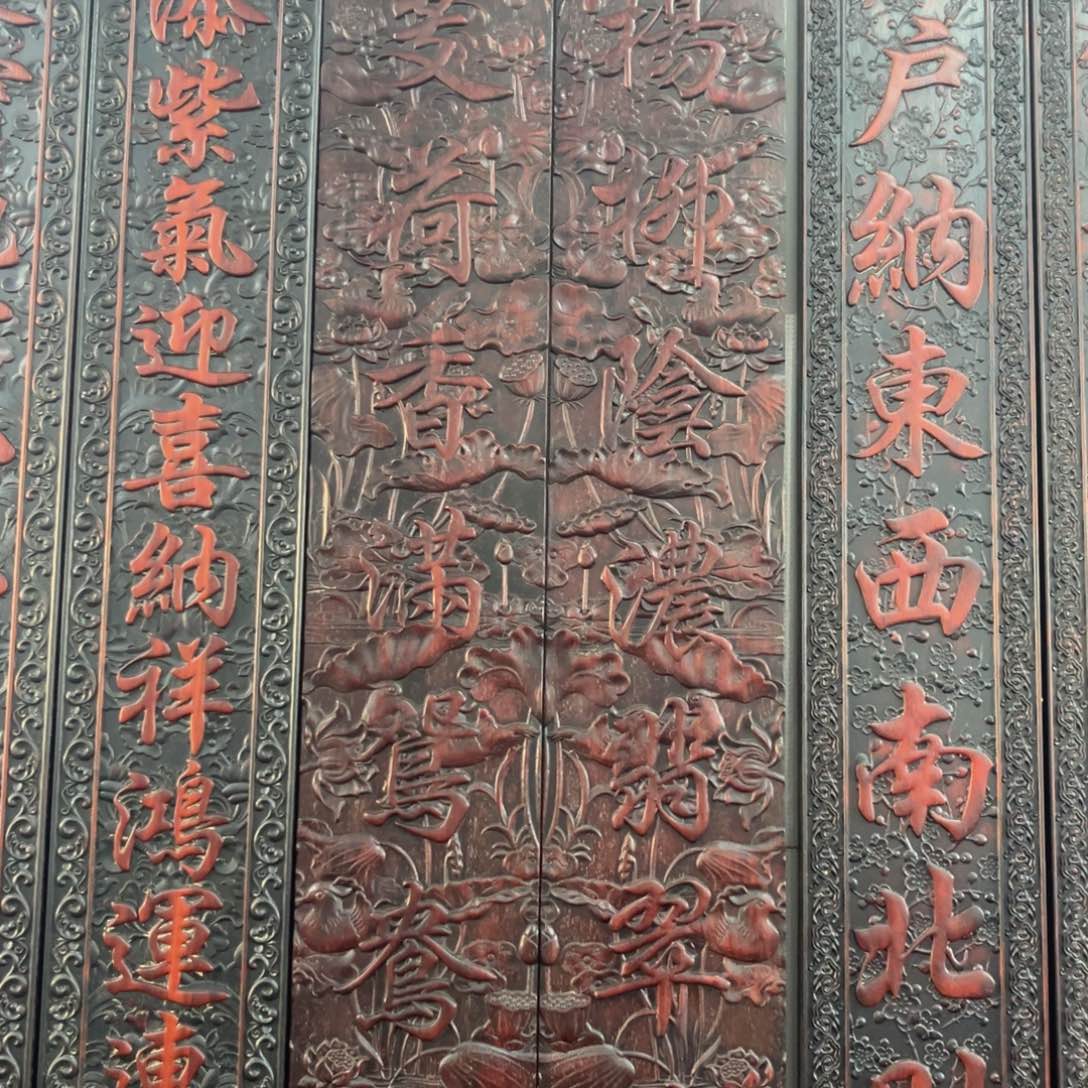 戶納東西南北
楊柳陰濃翡翠
芰荷香滿鴛鴦
添紫氣迎喜納祥鴻運連